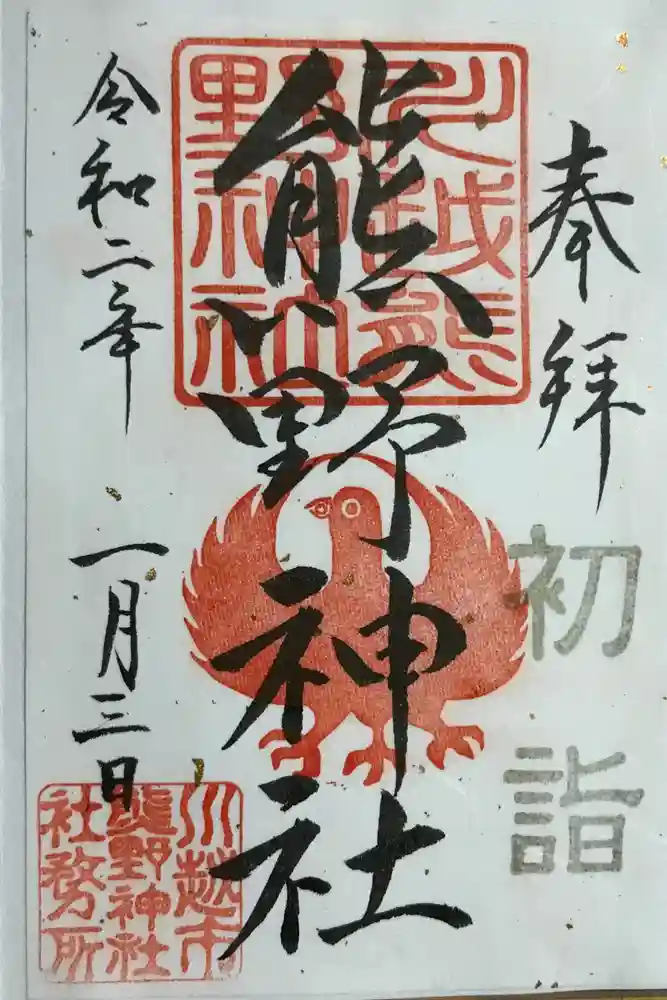 奉拝
初詣
熊野神社
川越熊野神社
令和二年 一月三日
川越市
熊野神社
社務所